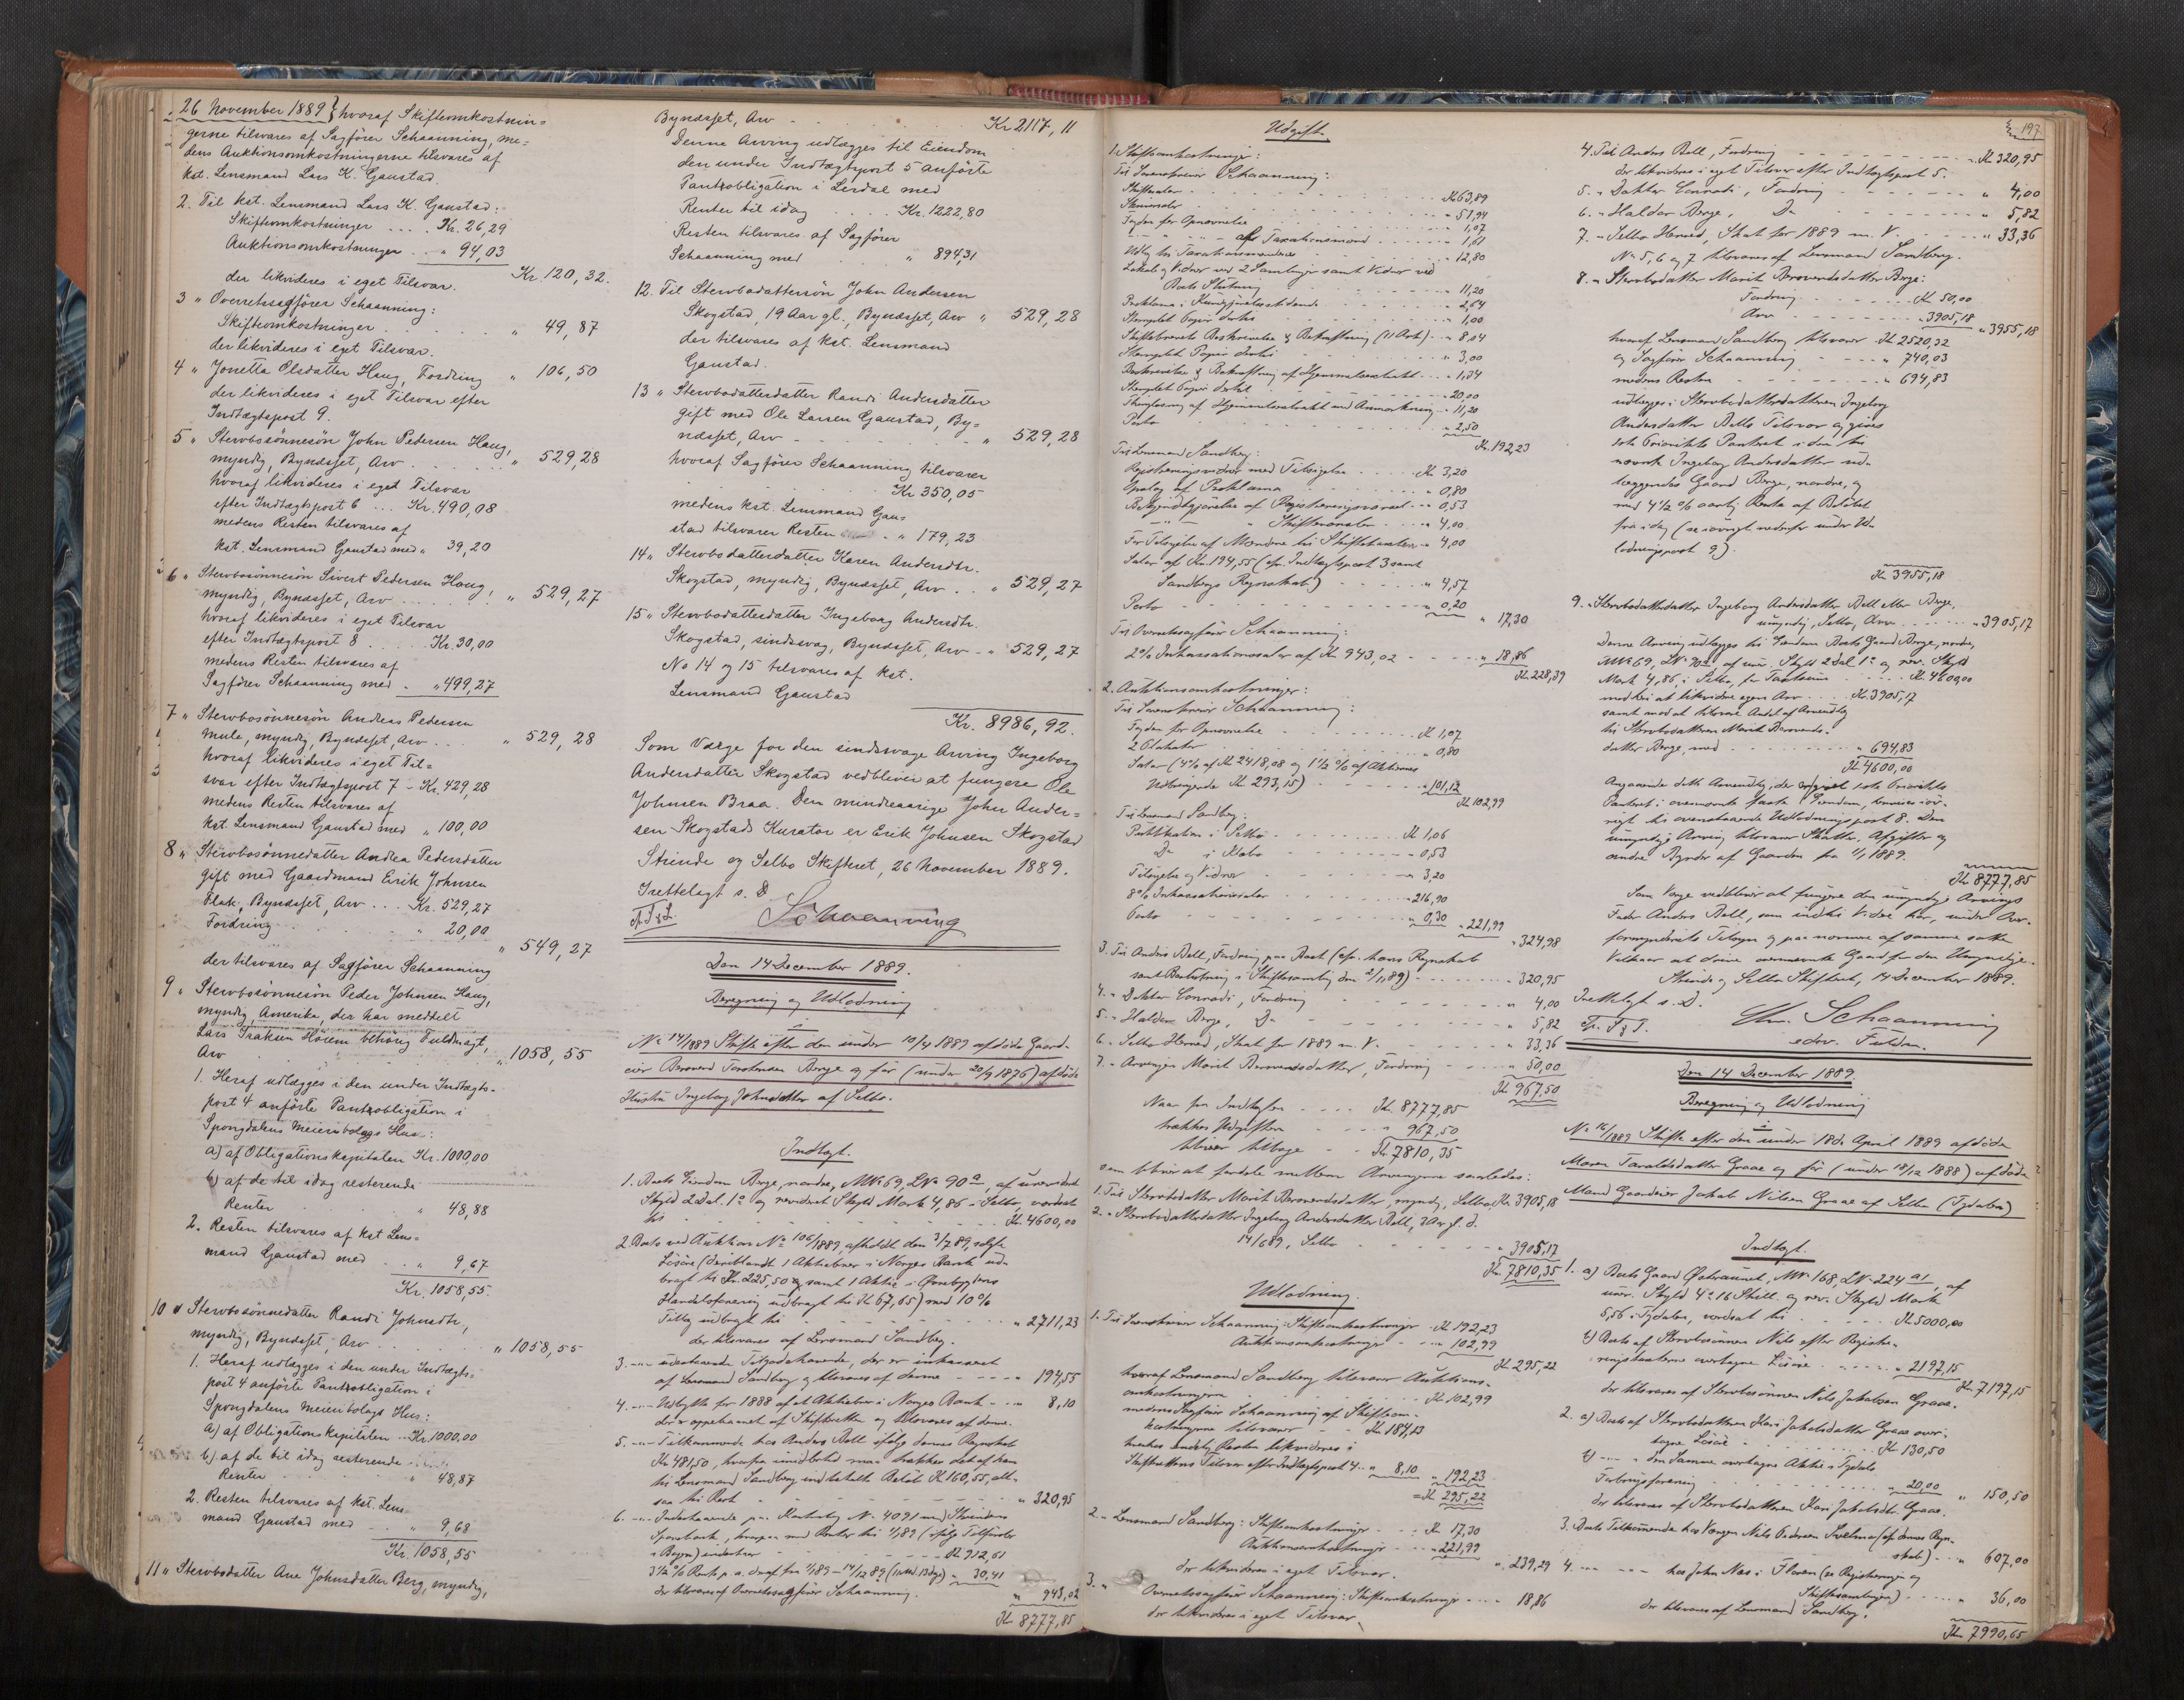 26 November 1889 } hvoraf Skifteomkostnin=
gerne tilsvares af Sagfører Schaanning, me=
dens Auktionsomkostningerne tilsvares af
kst. Lensmand Lars K. Gaustad.
2. Til kst. Lensmand Lars K. Gaustad:
Skifteomkostninger . . . Kr. 26,29
Auktionsomkostninger . . " 94,03
Kr. 120,32.
der likvideres i eget Tilsvar.
3 " Overretssagfører Schaanning:
Skifteomkostninger . . . " 49,87
der likvideres i eget Tilsvar.
4 " Jonetta Olsdatter Haug, Fordring " 106,50
der likvideres i eget Tilsvar efter
Indtægtspost 9.
5 " Stervbosönnesön John Pedersen Haug,
myndig, Bynæsset, Arv . . . " 529,28
hvoraf likvideres i eget Tilsvar
efter Indtægtspost 6 . . . Kr. 490,08
medens Resten tilsvares af
kst. Lensmand Gaustad med " 39,20
6 " Stervbosönnesön Sivert Pedersen Haug,
myndig, Bynæsset, Arv . . . " 529,27
hvoraf likvideres i eget Tilsvar
efter Indtægtspost 8 . . . Kr. 30,00
medens Resten tilsvares af
Sagfører Schaanning med . " 499,27
7 " Stervbosönnesön Andreas Pedersen
Mule, myndig, Bynæsset, Arv . . . " 529,28
hvoraf likvideres i eget Til=
svar efter Indtægtspost 7 - Kr. 429,28
medens Resten tilsvares af
kst. Lensmand Gaustad med " 100,00
8 " Stervbosönnedatter Andrea Pedersdatter
gift med Gaardmand Eirik Johnsen
Flak, Bynæsset, Arv . . . Kr. 529,27
Fordring . . . " 20,00
" 549,27
der tilsvares af Sagfører Schaanning
9 " Stervbosönnesön Peder Johnsen Haug,
myndig, Amerika, der har meddelt
Lars Iraksen Hörem behörig Fuldmagt,
Arv . . . " 1058,55
1. Heraf udlægges i den under Indtægts-
post 4 anførte Pantobligation i
Spongdalens Meieribolags Hus:
a) af Obligationskapitalen Kr. 1000,00
b) af de til idag resterende
Renter . . . " 48,88
2. Resten tilsvares af kst Lens=
mand Gaustad med . . " 9,67
Kr. 1058,55.
10 " Stervbosönnedatter Randi Johnsdtr,
myndig, Bynæsset, Arv . . . " 1058,55
1. Heraf udlægges i den under Indtægts=
post 4 anførte Pantobligation i
Spongdalens Meieribolags Hus:
a) af Obligationskapitalen . . Kr. 1000,00
b) af de til idag resterende
Renter . . . " 48,87
2. Resten tilsvares af kst. Lens=
mand Gaustad med . . " 9,68
Kr. 1058,55
11 " Stervbodatter Ane Johnsdatter Berg, myndig,
Bynæsset, Arv . . . Kr 2117,11
Denne Arving udlægges til Eiendom
den under Indtægtspost 5 anførte
Pantobligation i Lerdal med
Renter til idag . . . Kr. 1222,80
Resten tilsvares af Sagfører
Schaanning med . . . " 894,31
12. Til Stervbodattersön John Andersen
Skogstad, 19 Aar gl., Bynæsset, Arv " 529,28
der tilsvares af kst. Lensmand
Gaustad.
13 " Stervbodatterdatter Randi Andersdatter
gift med Ole Larsen Gaustad, By=
næsset, Arv . . . " 529,28
hvoraf Sagfører Schaanning tilsvarer
. . . Kr. 350,05
medens kst. Lensmand Gau-
stad tilsvarer Resten . " 179,23
14 " Stervbodatterdatter Karen Andersdtr.
Skogstad, myndig, Bynæsset, Arv . . " 529,27
15 " Stervbodatterdatter Ingeborg Andersdtr.
Skogstad, sindssvag, Bynæsset, Arv . . " 529,27
No 14 og 15 tilsvares af kst.
Lensmand Gaustad
Kr. 8986,92.
Som Værge for den sindssvage Arving Ingeborg
Andersdatter Skogstad vedbliver at fungere Ole
Johnsen Braa. Den mindreaarige John Ander=
sen Skogstads Kurator er Erik Johnsen Skogstad
Strinde og Selbo Skifteret, 26 November 1889.
Irettelagt s. D.
Schaanning
Den 14 December 1889.
Beregning og Udlodning
i
No 14/1889 Skifte efter den under 10/4 1889 afdøde Gaard-
eier Berovend Torstensen Berge og før (under 20/9 1876) afdøde
Hustru Ingeborg Johnsdatter af Selbo.
Indtægt.
1. Boets Eiendom Berge, nordre, MNo 69, LNo 90a, af urevideret
Skyld 2 Dal. 1 o og revideret Skyld Mark 4,86 i Selbo, værdsat
til . . . Kr. 4600,00
2. Boets ved Auktion No 106/1889, afholdt den 3/7 89, solgte
Løsøre (deriblandt 1 Aktiebrev i Norges Bank ud-
bragt til Kr. 225,50 og samt 1 Aktie i
Handelsforening udbragt til Kr 67,65) med 10%
Tillæg udbragt til . . . " 2711,23
der tilsvares af Lensmand Sandberg.
3. -"- udestaaende Tilgodehavende, der er inkasseret
af Lensmand Sandberg og tilsvares af denne . . . " 194,55
4. -"- Udbytte for 1888 af et Aktiebrev i Norges Bank . . " 8,10
der er oppebaaret af Skifteretten og tilsvares af denne.
5. -"- Tilkommende hos Anders Bell ifølge dennes Regnskab
Kr 481,50, hvorfra imidlertid maa trækkes det af ham
til Lensmand Sandberg indbetalte Beløb Kr 160,55, alt-
saa til Rest . . . " 320,95
6. -"- Indestaaende paa Kontrabog No 4091 med Strindens
Sparebank, hvorpaa med Renter til 1/1 89 (ifølge Tilførsler
i Bogen) indestaar . . . Kr 912,61
3 1/2 % Rente p. a. deraf fra 1/1 89 - 14/12 89 (11 Md. 13 Dage) " 30,41
" 943,02
der tilsvares af Overretssagfører Schaanning.
Kr 8777,85
Udgift.
1. Skifteomkostninger:
Til Sorenskriver Schaanning:
Skiftesalær . . . Kr 63,89
Skriversalær . . . " 51,94
Gebyr for Opnævnelse . . . " 1,07
af Taxationsmænd . . . " 1,61
Udlæg til Taxationsmændene . . . " 12,80
Lokale og Vidner ved 2 Samlinger samt Vidner ved
Boets Slutning . . . " 11,20
Proklama i Kundgjørelsestidende . . . " 2,64
Stemplet Papir dertil . . . " 1,00
Skiftebrevets Beskrivelse & Bekræftning (11 Ark) . . " 8,04
Stemplet Papir dertil . . . " 3,00
Beskrivelse & Bekræftning af Hjemmelsextrakt . . . " 1,34
Stemplet Papir dertil . . . " 20,00
Thinglæsning af Hjemmelsextrakt med Anmærkning . . " 11,20
Porto . . . " 2,50
Kr. 192,23
Til Lensmand Sandberg:
Registreringsvidner med Tilsigelse . . . Kr 3,20
Opslag af Proklama . . . " 0,80
Bekjendtgjørelse af Registreringsvarsel . . " 0,53
Skiftevarsler . . . " 4,00
For Tilsigelse af Mændene til Skiftetaxten . " 4,00
Salær af Kr. 194,55 (cfr. Indtægtspost 3 samt
Sandbergs Regnskab) . . . " 4,57
Porto . . . " 0,20
" 17,30
Til Overretssagfører Schaanning:
2% Inkassationssalær af Kr 943,02 . . . " 18,86
Kr. 228,39
2. Auktionsomkostninger:
Til Sorenskriver Schaanning:
Gebyr for Opnævnelse . . . Kr 1,07
2 Plakater . . . " 0,80
Salær (4% af Kr 2418,08 og 1 1/2 % af Aktiernes
Udbringende Kr 293,15) . . . " 101,12
Kr 102,99
Til Lensmand Sandberg:
Publikation i Selbo . . . Kr 1,06
Do i Klæbo . . . " 0,53
Tilsigelse og Vidner . . . " 3,20
8% Inkassationssalær . . . " 216,90
Porto . . . " 0,30
" 221,99
" 324,98
3. Til Anders Bell, Fordring paa Boet (cfr. hans Regnskab
samt Beslutning i Skiftesamling den 2/11 89) . . . " 320,95
4. " Doktor Conradi, Fordring . . . " 4,00
5. " Haldor Berge, Do . . . " 5,82
6. " Selbo Herred, Skat for 1889 m. V. . . . " 33,36
7. " Arvingen Marit Berovendsdatter, Fordring . . . " 50,00
Kr 967,50
Naar fra Indtægten . . . Kr. 8777,85
trækkes Udgiften . . . " 967,50
bliver tilbage . . Kr 7810,35
som bliver at fordele mellem Arvingerne saaledes:
1. Til Stervbodatter Marit Berovendsdatter, myndig, Selbo, Kr. 3905,18
2. " Stervbodatterdatter Ingeborg Andersdatter Bell, 3 Aar g. d.
14/6 89, Selbo . . . " 3905,17
Kr. 7810,35
Udlodning.
1. Til Sorenskriver Schaanning: Skifteomkostninger Kr 192,23
Auktionsomkostninger . . " 102,99
Kr 295,22
hvoraf Lensmand Sandberg tilsvarer Auktions-
omkostningerne . . . Kr 102,99
medens Sagfører Schaanning af Skifteom-
kostningerne tilsvarer . . Kr 184,13
hvorhos endelig Resten likvideres i
Skifterettens Tilsvar efter Indtægtspost 4 . . " 8,10 " 192,23
= Kr 295,22
2. " Lensmand Sandberg: Skifteomkostninger . . . Kr 17,30
Auktionsomkostninger . . . " 221,99
" 239,29
der likvideres i eget Tilsvar.
3. " Overretssagfører Schaanning: Skifteomkostninger . . . " 18,86
der likvideres i eget Tilsvar.
197.
4. Til Anders Bell, Fordring . . . Kr 320,95
der likvideres i eget Tilsvar efter Indtægtspost 5.
5. " Doktor Conradi, Fordring . . . " 4,00
6. " Haldor Berge, Do . . . " 5,82
7. " Selbo Herred, Skat for 1889 m. V. . . . " 33,36
No 5, 6 og 7 tilsvares af Lensmand Sandberg.
8. " Stervbodatter Marit Berovendsdatter Berge:
Fordring . . . Kr 50,00
Arv . . . " 3905,18
" 3955,18
hvoraf Lensmand Sandberg tilsvarer Kr 2520,32
og Sagfører Schaanning . . . " 740,03
medens Resten . . . " 694,83
udlægges i Stervbodatterdatteren Ingeborg
Andersdatter Bells Tilsvar og gives
1ste Prioritets Panteret i den til
nævnte Ingeborg Andersdatter ud-
læggende Gaard Berge, nordre, og
med 4 1/2 % aarlig Rente af Beløbet
fra idag (se iøvrigt nedenfor under Ud-
lodningspost 9).
Kr. 3955,18
9. " Stervbodatterdatter Ingeborg Andersdatter Bell eller Berge,
umyndig, Selbo, Arv . . . " 3905,17
Denne Arving udlægges til Eiendom Boets Gaard Berge, nordre,
MNo 69, LNo 90a, af urev. Skyld 2 Dal. 1 o og rev. Skyld
Mark 4,86 i Selbo, for Taxtsum . . . Kr. 4600,00
mod til at likvidere egen Arv . . . Kr. 3905,17
samt mod at tilsvare Andel af Arveudlæg
til Stervbodatteren Marit Berovends-
datter Berge, med . . . " 694,83
Kr 4600,00
Angaaende dette Arveudlæg, der er givet 1ste Prioritets
Panteret i overnævnte faste Eiendom, henvises iøv-
rigt til ovenstaaende Udlodningspost 8. Den
umyndige Arving tilsvarer Skatter, Afgifter og
andre Byrder af Gaarden fra 1/1 1889.
Kr 8777,85
Som Værge vedbliver at fungere den umyndige Arvings
Fader Anders Bell, som indtil Videre har, under Over-
formynderiets Tilsyn og paa nærmere af samme satte
Vilkaar at drive overnævnte Gaard for den Umyndige.
Strinde og Selbo Skifteret, 14 December 1889.
Irettelagt s. D.
Chr. Schaanning
edsv. Fuldm.
Den 14 December 1889.
Beregning og Udlodning
i
No 16/1889 Skifte efter den under 18de April 1889 afdøde
Maren Taraldsdatter Graae og før (under 18/12 1888) afdøde
Mand Gaardeier Jakob Nilsen Graae af Selbo (Tydalen)
Indtægt.
1. a) Boets Gaard Østeraunet, MNo 168, LNo 224 a1, af
urev. Skyld 4 o 16 Skill. og rev. Skyld Mark
5,56 i Tydalen, værdsat til . . . Kr 5000,00
b) Boets af Stervbosønnen Nils efter Registre-
ringstaxterne overtagne Løsøre . . . " 2197,15
Kr 7197,15
der tilsvares af Stervbosønnen Nils Jakobsen Graae.
2. a) Boets af Stervbodatteren Kari Jakobsdatter Graae over-
tagne Løsøre . . . Kr 130,50
b) -"- " den Samme overtagne Aktie i Tydals
Forbrugsforening . . . " 20,00
" 150,50
der tilsvares af Stervbodatteren Kari Jakobsdtr. Graae.
3. Boets Tilkommende hos Værgen Nils Pedersen Svelmo (cfr. dennes Regn-
skab) . . . " 607,00
4. -"- -"- hos John Næs i Floren (se Registreringen og
Skiftesamlingen) . . . " 36,00
der tilsvares af Lensmand Sandberg.
Kr. 7990,65